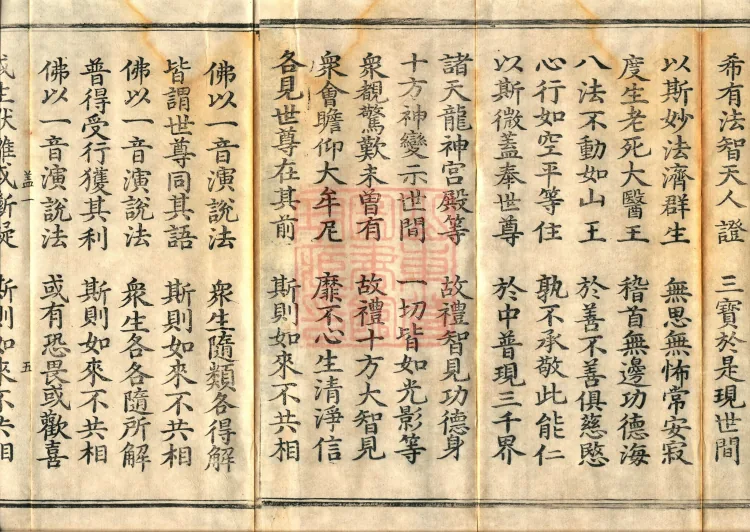 希有法智天人證　三寶於是現世間
以斯妙法濟群生　無思無怖常安寂
度生老死大醫王　稽首無邊功德海
八法不動如山王　於善不善俱慈愍
心行如空平等住　孰不承敬此能仁
以斯微蓋奉世尊　於中普現三千界
諸天龍神宮殿等　故禮智見功德身
十方神變示世間　一切皆如光影等
衆觀驚歎未曾有　故禮十方大智見
衆會瞻仰大牟尼　靡不心生清淨信
各見世尊在其前　斯則如來不共相
佛以一音演說法　衆生隨類各得解
皆謂世尊同其語　斯則如來不共相
佛以一音演說法　衆生各各隨所解
普得受行獲其利　斯則如來不共相
佛以一音演說法　或有恐畏或歡喜
盖一　五
或生厭離或斷疑　斯則如來不共相